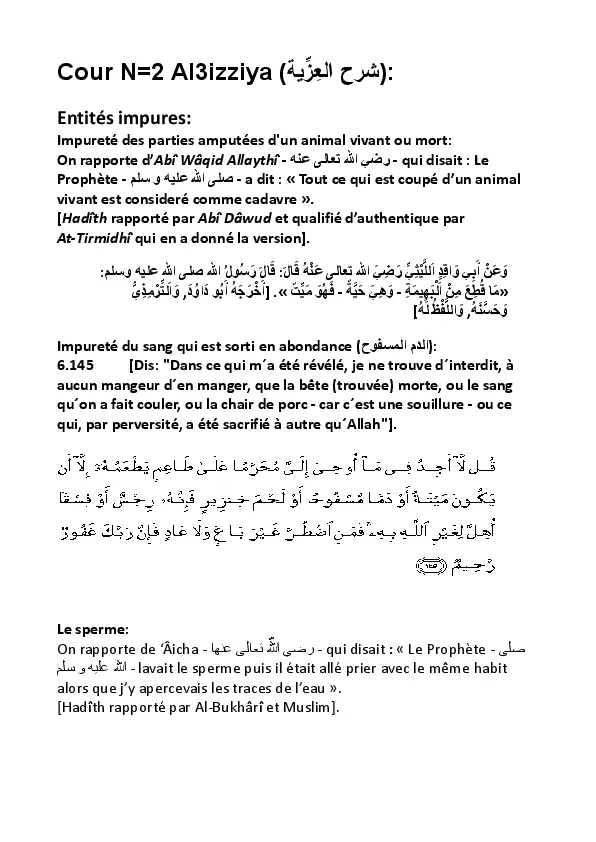 Cour N=2 Al3izziya (شرح العِزِّية):
Entités impures:
Impureté des parties amputées d'un animal vivant ou mort:
On rapporte d’Abî Wâqid Allaythî - رضي الله تعالى عنه - qui disait : Le
Prophète - صلى الله عليه و سلم - a dit : « Tout ce qui est coupé d’un animal
vivant est consideré comme cadavre ».
[Hadîth rapporté par Abî Dâwud et qualifié d’authentique par
At-Tirmidhî qui en a donné la version].
وَعَنْ أَبِي وَاقِدٍ اَللَّيْثِيِّ رَضِيَ الله تعالى عَنْهُ قَالَ: قَالَ رَسُولُ الله صلى الله عليه وسلم:
«مَا قُطِعَ مِنْ اَلْبَهِيمَةِ - وَهِيَ حَيَّةٌ - فَهُوَ مَيِّتٌ ». [أَخْرَجَهُ أَبُو دَاوُدَ, وَاَلتِّرْمِذِيُّ
وَحَسَّنَهُ, وَاللَّفْظُ لَهُ]
Impureté du sang qui est sorti en abondance (الدم المسفوح):
6.145 [Dis: "Dans ce qui m´a été révélé, je ne trouve d´interdit, à
aucun mangeur d´en manger, que la bête (trouvée) morte, ou le sang
qu´on a fait couler, ou la chair de porc - car c´est une souillure - ou ce
qui, par perversité, a été sacrifié à autre qu´Allah"].
قُل لَّآ أَجِدُ فِى مَآ أُوحِىَ إِلَىَّ مُحَرَّمًا عَلَىٰ طَاعِمٍ يَطْعَمُهُۥٓ إِلَّآ أَن
يَكُونَ مَيْتَةً أَوْ دَمًا مَّسْفُوحًا أَوْ لَحْمَ خِنزِيرٍ فَإِنَّهُۥ رِجْسٌ أَوْ فِسْقًا
أُهِلَّ لِغَيْرِ ٱللَّهِ بِهِۦ ۚ فَمَنِ ٱضْطُرَّ غَيْرَ بَاغٍ وَلَا عَادٍ فَإِنَّ رَبَّكَ غَفُورٌ
رَّحِيمٌ ﴿١٤٥﴾
Le sperme:
On rapporte de ‘Âicha - رضي الله تعالى عنها - qui disait : « Le Prophète - صلى
الله عليه و سلم - lavait le sperme puis il était allé prier avec le même habit
alors que j’y apercevais les traces de l’eau ».
[Hadîth rapporté par Al-Bukhârî et Muslim].